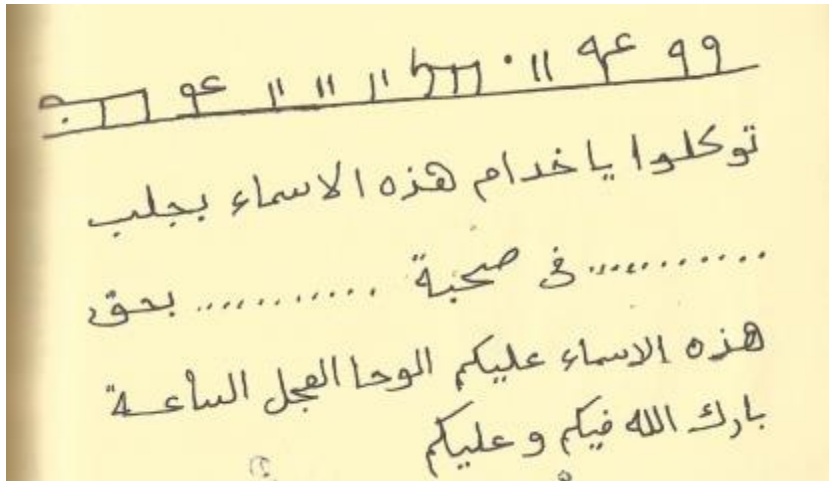 توكلوا يا خدام هذه الاسماء بجلب
............ فى صحبة ............ بحق
هذه الاسماء عليكم الوحا العجل الساعة
بارك الله فيكم وعليكم